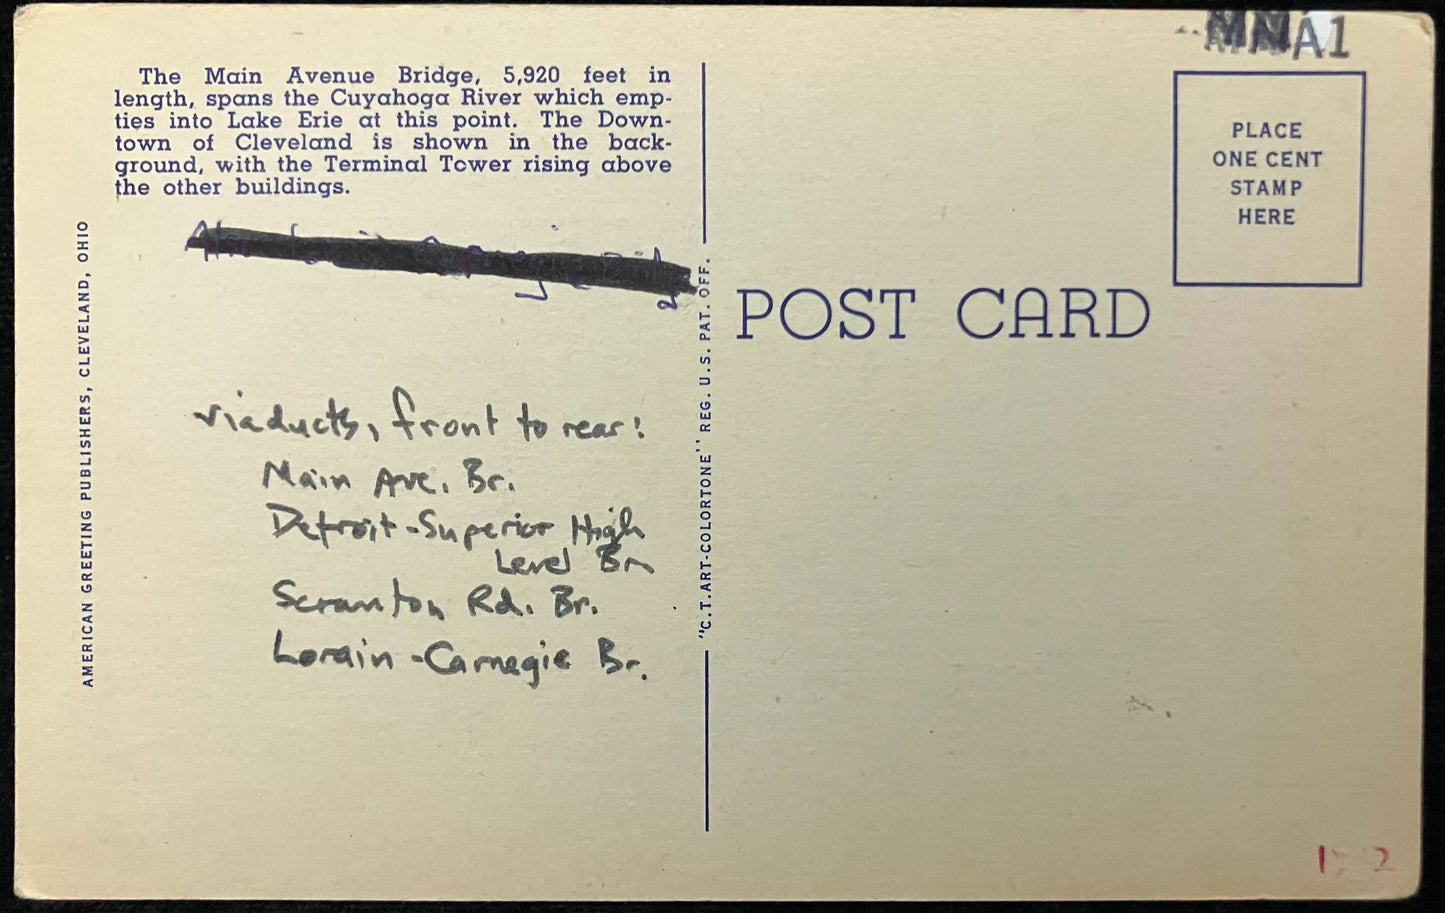 MNA1
The Main Avenue Bridge, 5,920 feet in
length, spans the Cuyahoga River which emp-
ties into Lake Erie at this point. The Down-
town of Cleveland is shown in the back-
ground, with the Terminal Tower rising above
the other buildings.
viaducts, front to rear:
Main Ave. Br.
Detroit-Superior High
Level Br
Scranton Rd. Br.
Lorain-Carnegie Br.
AMERICAN GREETING PUBLISHERS, CLEVELAND, OHIO
"C.T.ART-COLORTONE" REG. U.S. PAT. OFF.
POST CARD
PLACE
ONE CENT
STAMP
HERE